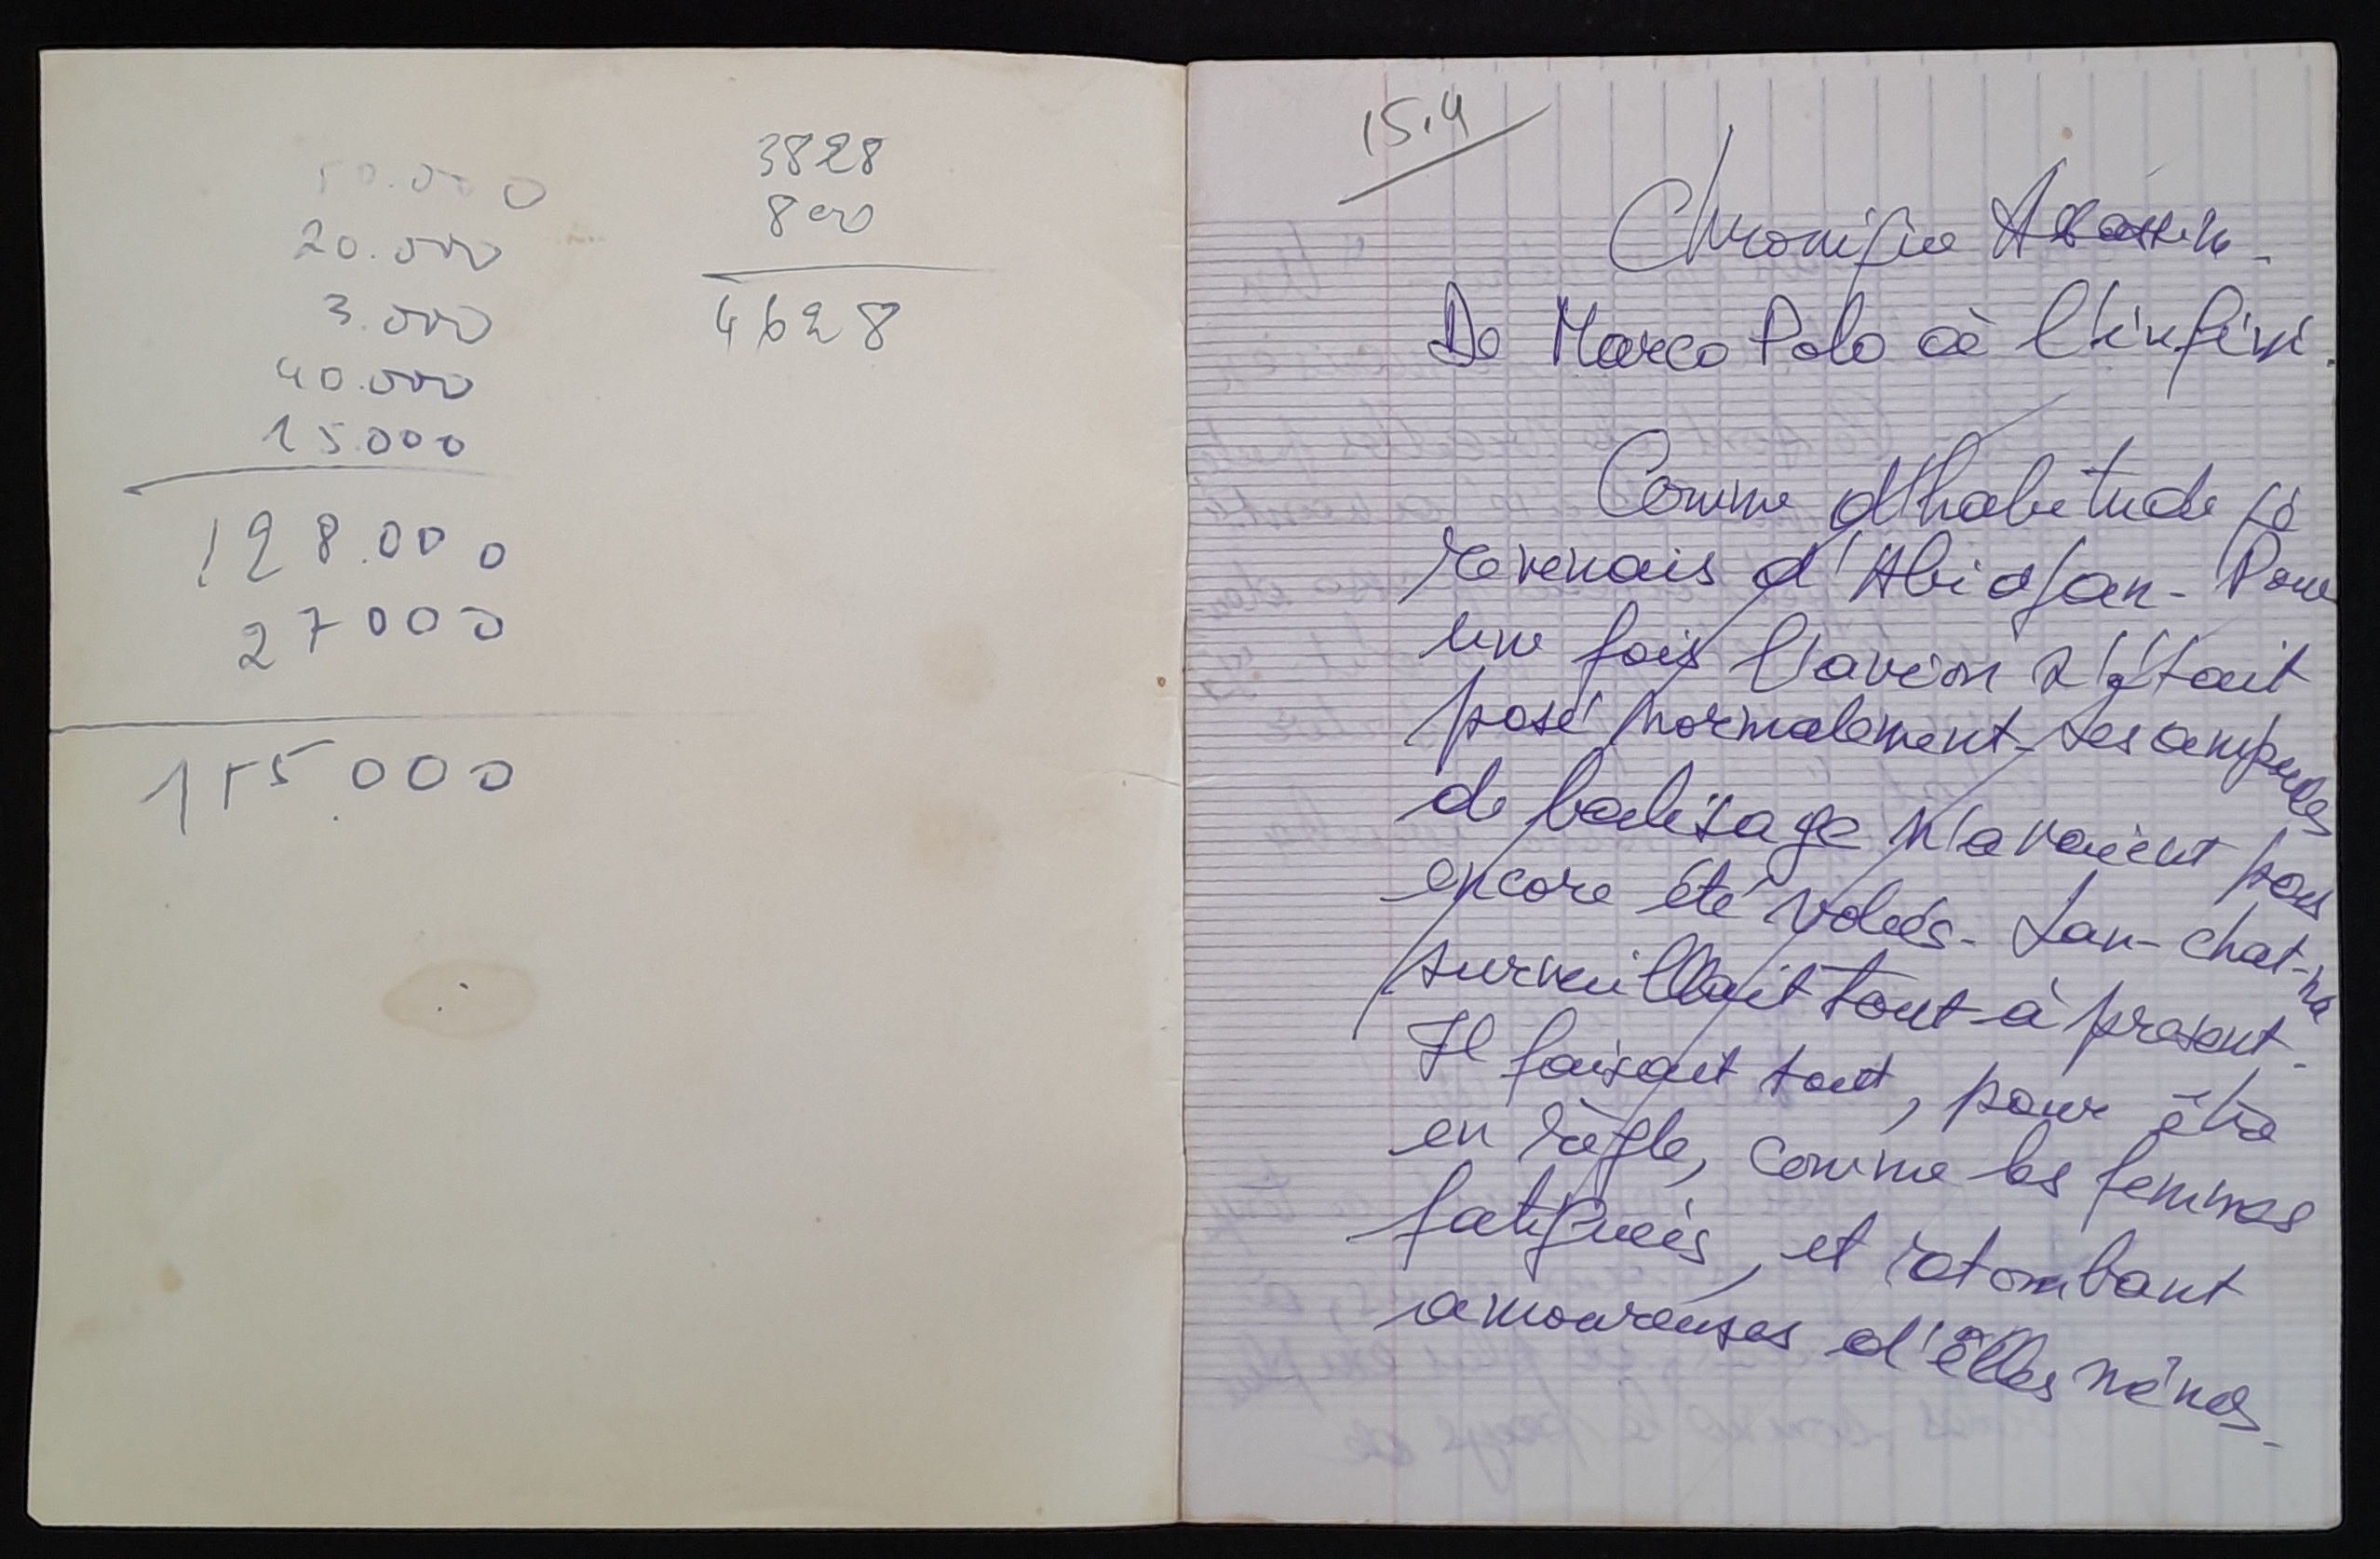 50.000
20.000
3.000
40.000
15.000
128.000
27000
155000
3828
800
4628
15.4
Chronique Assassin -
De Marco Polo à l'infini.
Comme d'habitude je
revenais d'Abidjan - Pour
une fois l'avion s'était
posé normalement - Les ampoules
de balisage n'avaient pas
encore été volées - Lan-chat-na
surveillait tout à présent -
Il faisait tout, pour être
en règle, comme les femmes
fatiguées, et retombant
amoureuses d'elles mêmes -